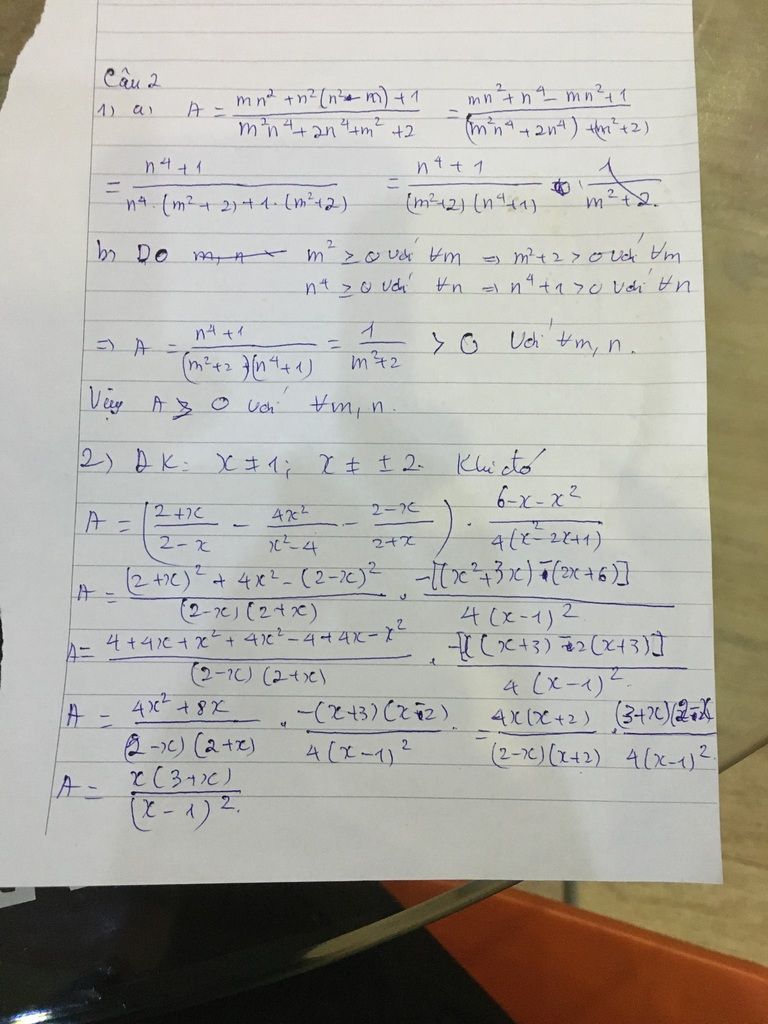 Câu 2
1) a, A = \frac{mn^2 + n^2(n^2 - m) + 1}{m^2n^4 + 2n^4 + m^2 + 2} = \frac{mn^2 + n^4 - mn^2 + 1}{(m^2n^4 + 2n^4) + (m^2 + 2)}
= \frac{n^4 + 1}{n^4 \cdot (m^2 + 2) + 1 \cdot (m^2 + 2)} = \frac{n^4 + 1}{(m^2 + 2)(n^4 + 1)} \cdot \frac{1}{m^2 + 2}.
b, Do m, n m^2 ≥ 0 với ∀m ⇒ m^2 + 2 > 0 với ∀m
n^4 ≥ 0 với ∀n ⇒ n^4 + 1 > 0 với ∀n
⇒ A = \frac{n^4 + 1}{(m^2 + 2)(n^4 + 1)} = \frac{1}{m^2 + 2} > 0 với ∀m, n.
Vậy A > 0 với ∀m, n.
2) ĐK: x ≠ 1; x ≠ ± 2. Khi đó
A = \left( \frac{2 + x}{2 - x} - \frac{4x^2}{x^2 - 4} - \frac{2 - x}{2 + x} \right) \cdot \frac{6 - x - x^2}{4(x^2 - 2x + 1)}
A = \frac{(2 + x)^2 + 4x^2 - (2 - x)^2}{(2 - x)(2 + x)} \cdot \frac{-[(x^2 + 3x) - (2x + 6)]}{4(x - 1)^2}
A = \frac{4 + 4x + x^2 + 4x^2 - 4 + 4x - x^2}{(2 - x)(2 + x)} \cdot \frac{-[x(x + 3) - 2(x + 3)]}{4(x - 1)^2}
A = \frac{4x^2 + 8x}{(2 - x)(2 + x)} \cdot \frac{-(x + 3)(x - 2)}{4(x - 1)^2} = \frac{4x(x + 2)}{(2 - x)(x + 2)} \cdot \frac{(3 + x)(2 - x)}{4(x - 1)^2}
A = \frac{x(3 + x)}{(x - 1)^2}.